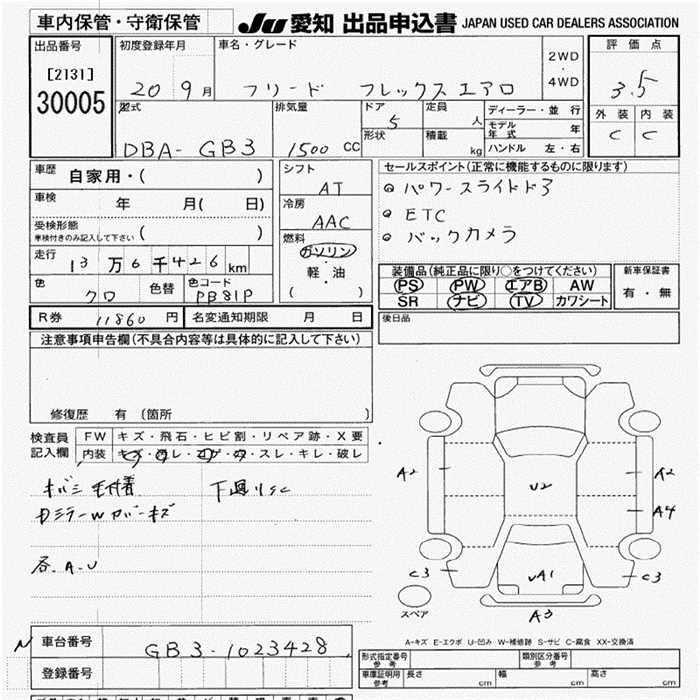 車内保管・守衛保管
JU 愛知 出品申込書 JAPAN USED CAR DEALERS ASSOCIATION
出品番号
[2131]
30005
初度登録年月
20 9月
車名・グレード
フリード フレックスエアロ
2WD
・
4WD
評価点
3.5
外装 内装
C C
型式
DBA-GB3
排気量
1500 CC
ドア
5
形状
定員
人
積載
kg
ディーラー・並行
モデル年式 年
ハンドル 左・右
車歴
自家用・( )
車検
年 月( 日)
受検形態
車検付きのみ記入して下さい ( )
走行
13万6千426km
色
クロ
色替
色コード
PB81P
シフト
AT
冷房
AAC
燃料
ガソリン
・
軽・油
( )
セールスポイント(正常に機能するものに限ります)
パワースライドドア
ETC
バックカメラ
装備品(純正品に限り○をつけてください)
PS PW エアB AW
SR ナビ TV カワシート
新車保証書
有・無
R券 11860円
名変通知期限 月 日
後日品
注意事項申告欄(不具合内容等は具体的に記入して下さい)
修復歴 有 (箇所 )
検査員記入欄
FW キズ・飛石・ヒビ割・リペア跡・X要
内装 キズ・汚レ・コゲ・穴・スレ・キレ・破レ
下廻りSC
各A.U
A2
U2
A2
A4
C3
UA1
C3
A3
スペア
A-キズ E-エクボ U-凹み W-補修跡 S-サビ C-腐食 XX-交換済
N
車台番号 GB3-1023428
登録番号
形式指定番号 参考
類別区分番号 参考
車庫証明用 参考
長さ cm 幅 cm 高さ cm